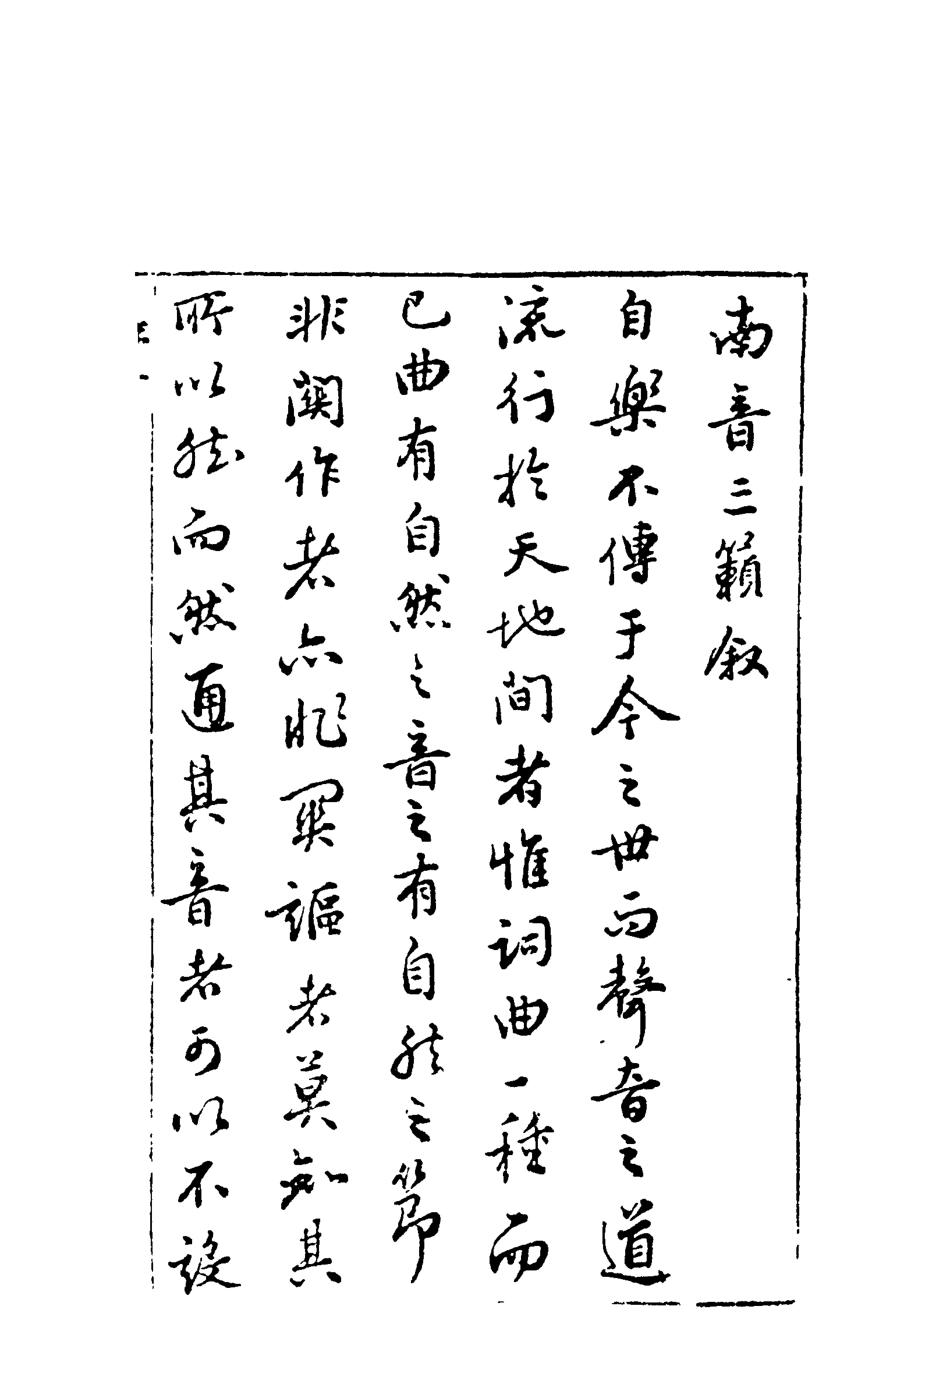 南音三籟叙
自樂不傳于今之世而聲音之道
流行於天地間者惟詞曲一種而
已曲有自然之音音有自然之節
非關作者亦非關謳者莫知其
所以然而然通其音者可以不設